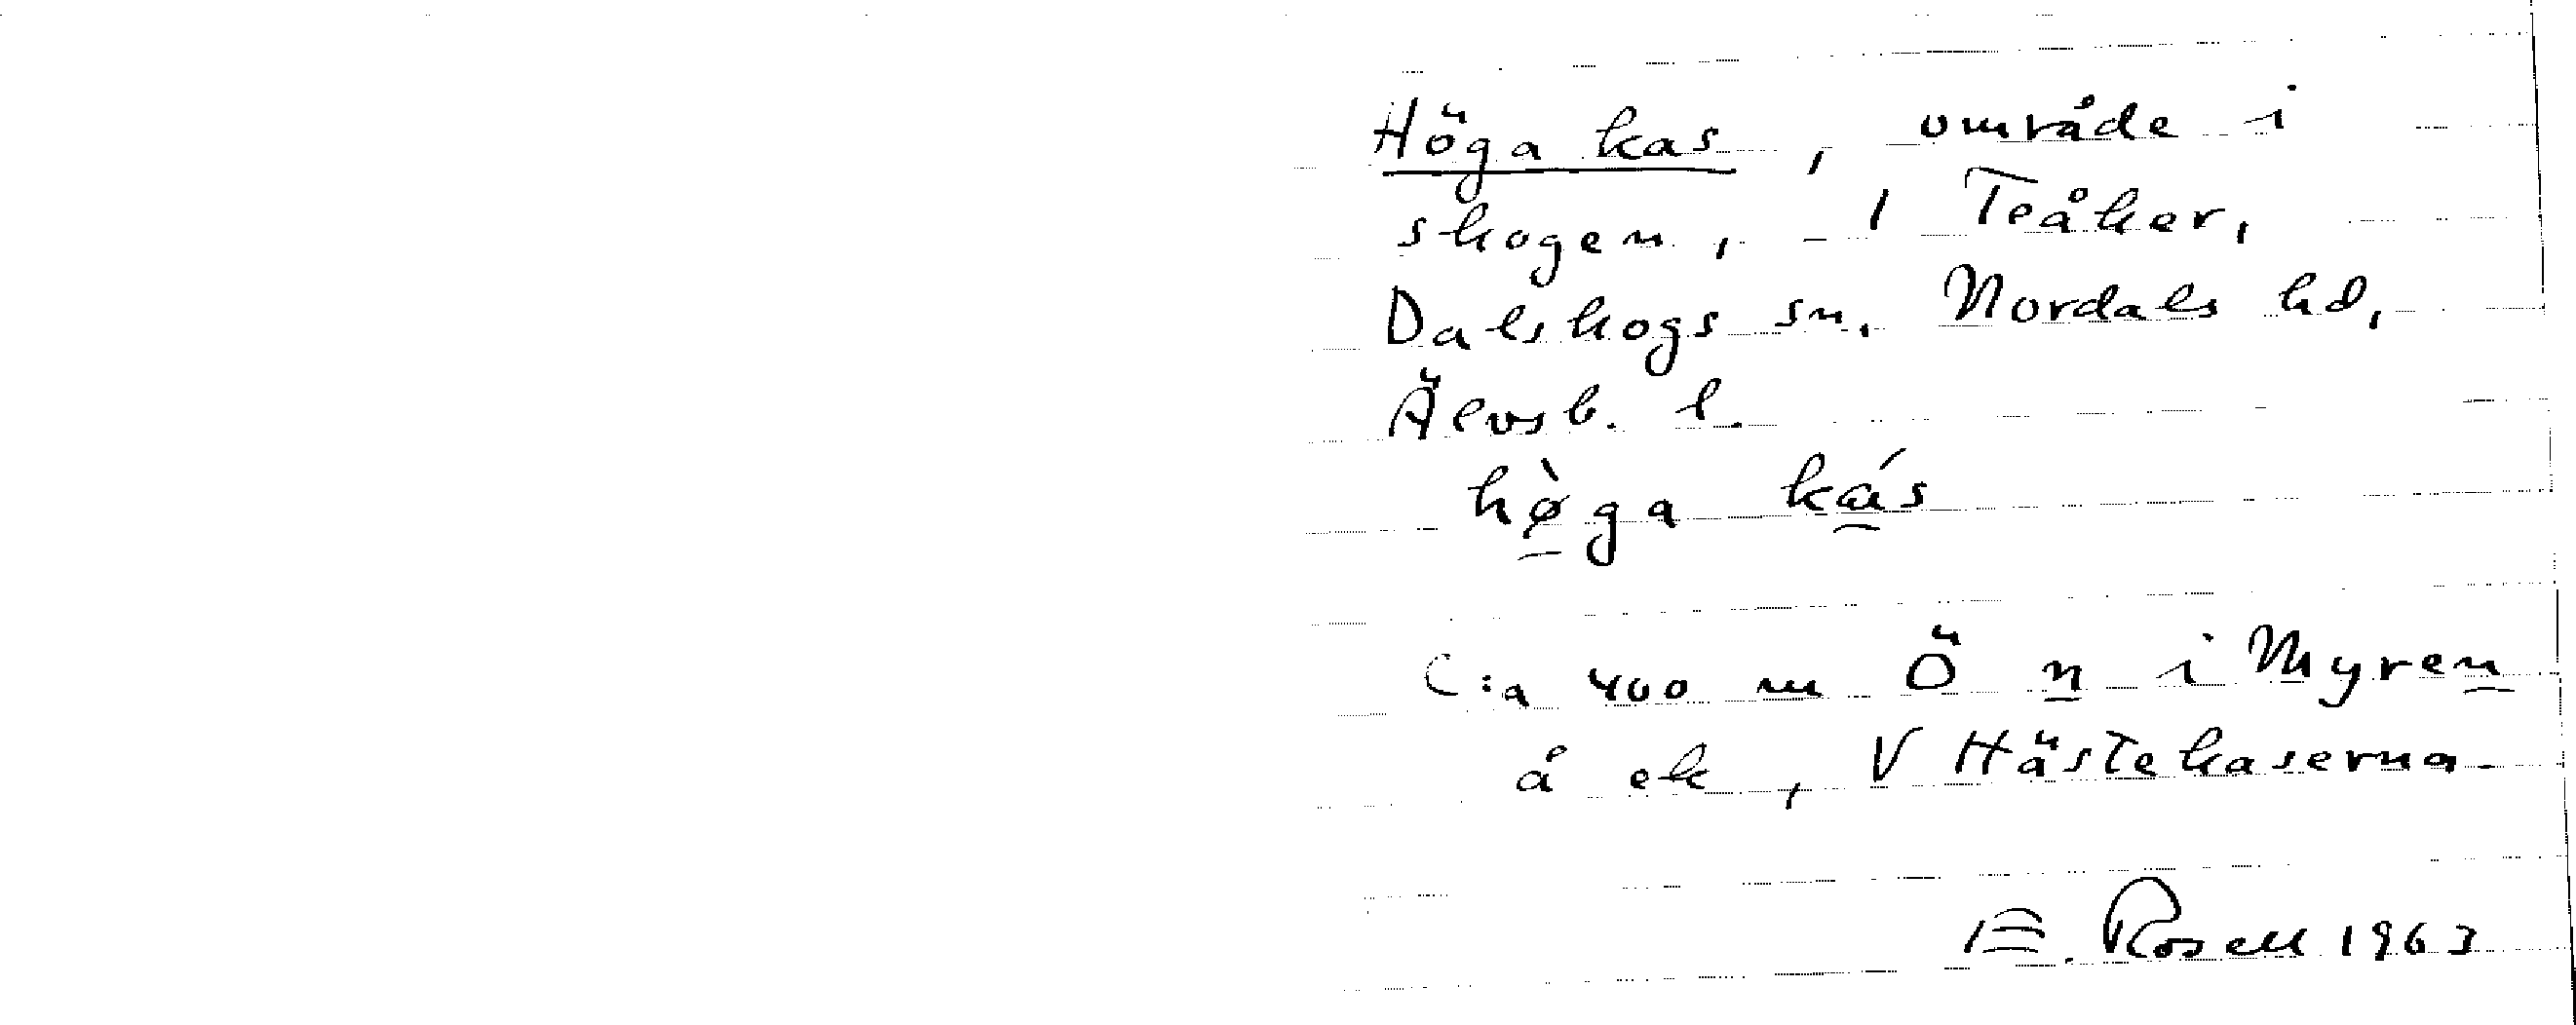 Höga kas, område i
skogen, 1 Teåker,
Dalskogs sn. Nordals hd,
Älvsb. l.
hø̀ga kás
C:a 400 m Ö n i Myren
å ek, V Hästekaserna.
E. Rosell 1963